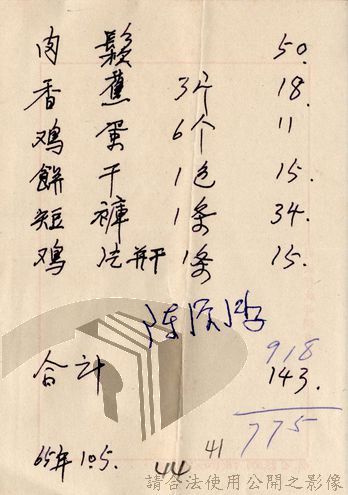 肉鬆 50.
香蕉 3个 18.
鸡蛋 6个 11
餅干 1包 15.
短褲 1条 34.
鸡 1条 15.
918
合计 143.
775
65年 10.5.
44
41
請合法使用公開之影像